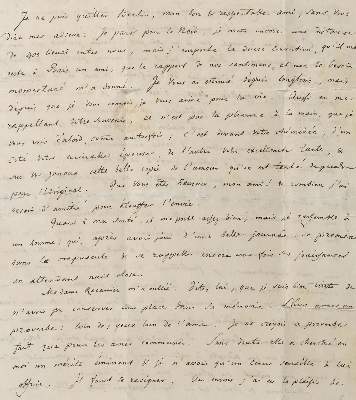 Je ne puis quitter Berlin, mon bon & respectable ami, sans vous
dire mes adieux. Je pars pour la
de plus entre nous, mais j'emporte la douce conviction, qu'il me
reste à Paris un ami, que le rapport de nos sentimens, et non le besoin
momentané m'a donné. Je vous ai estimé depuis longtems, mais
depuis que je vous connais je vous aime pour la vie. Aussi en me
rappellant votre souvenir, ce n'est pas la plume à la main, que je
vous vois d'abord, comme autrefois; c'est devant votre cheminée, d'un
côté votre aimable épouse, de l'autre votre excellente
cette belle copie de l'amour qu'on est tenté de prendre
pour l'original. Que vous êtes heureux, mon ami! & combien j'ai
besoin d'amitié, pour étouffer l'envie.
Quant à ma santé, elle est assez bien, mais je ressemble à
un homme, qui, après avoir joui d'une belle journée, se promène
dans le crépuscule & se rappelle encore une fois les jouissances
en attendant nuit close.
Madame Recamier m'a oublié. Dites lui, que je suis bien triste de
n'avoir pu conserver une place dans sa mémoire.
proverbe: loin des yeux loin de l'ame. Je ne croyois ce proverbe
fait que pour les ames communes. Sans doute elle a cherché en
moi un mérite éminent & je n'avois qu'un coeur sensible à lui
offrir. Il faut se resigner. Du moins j'ai eu le plaisir de